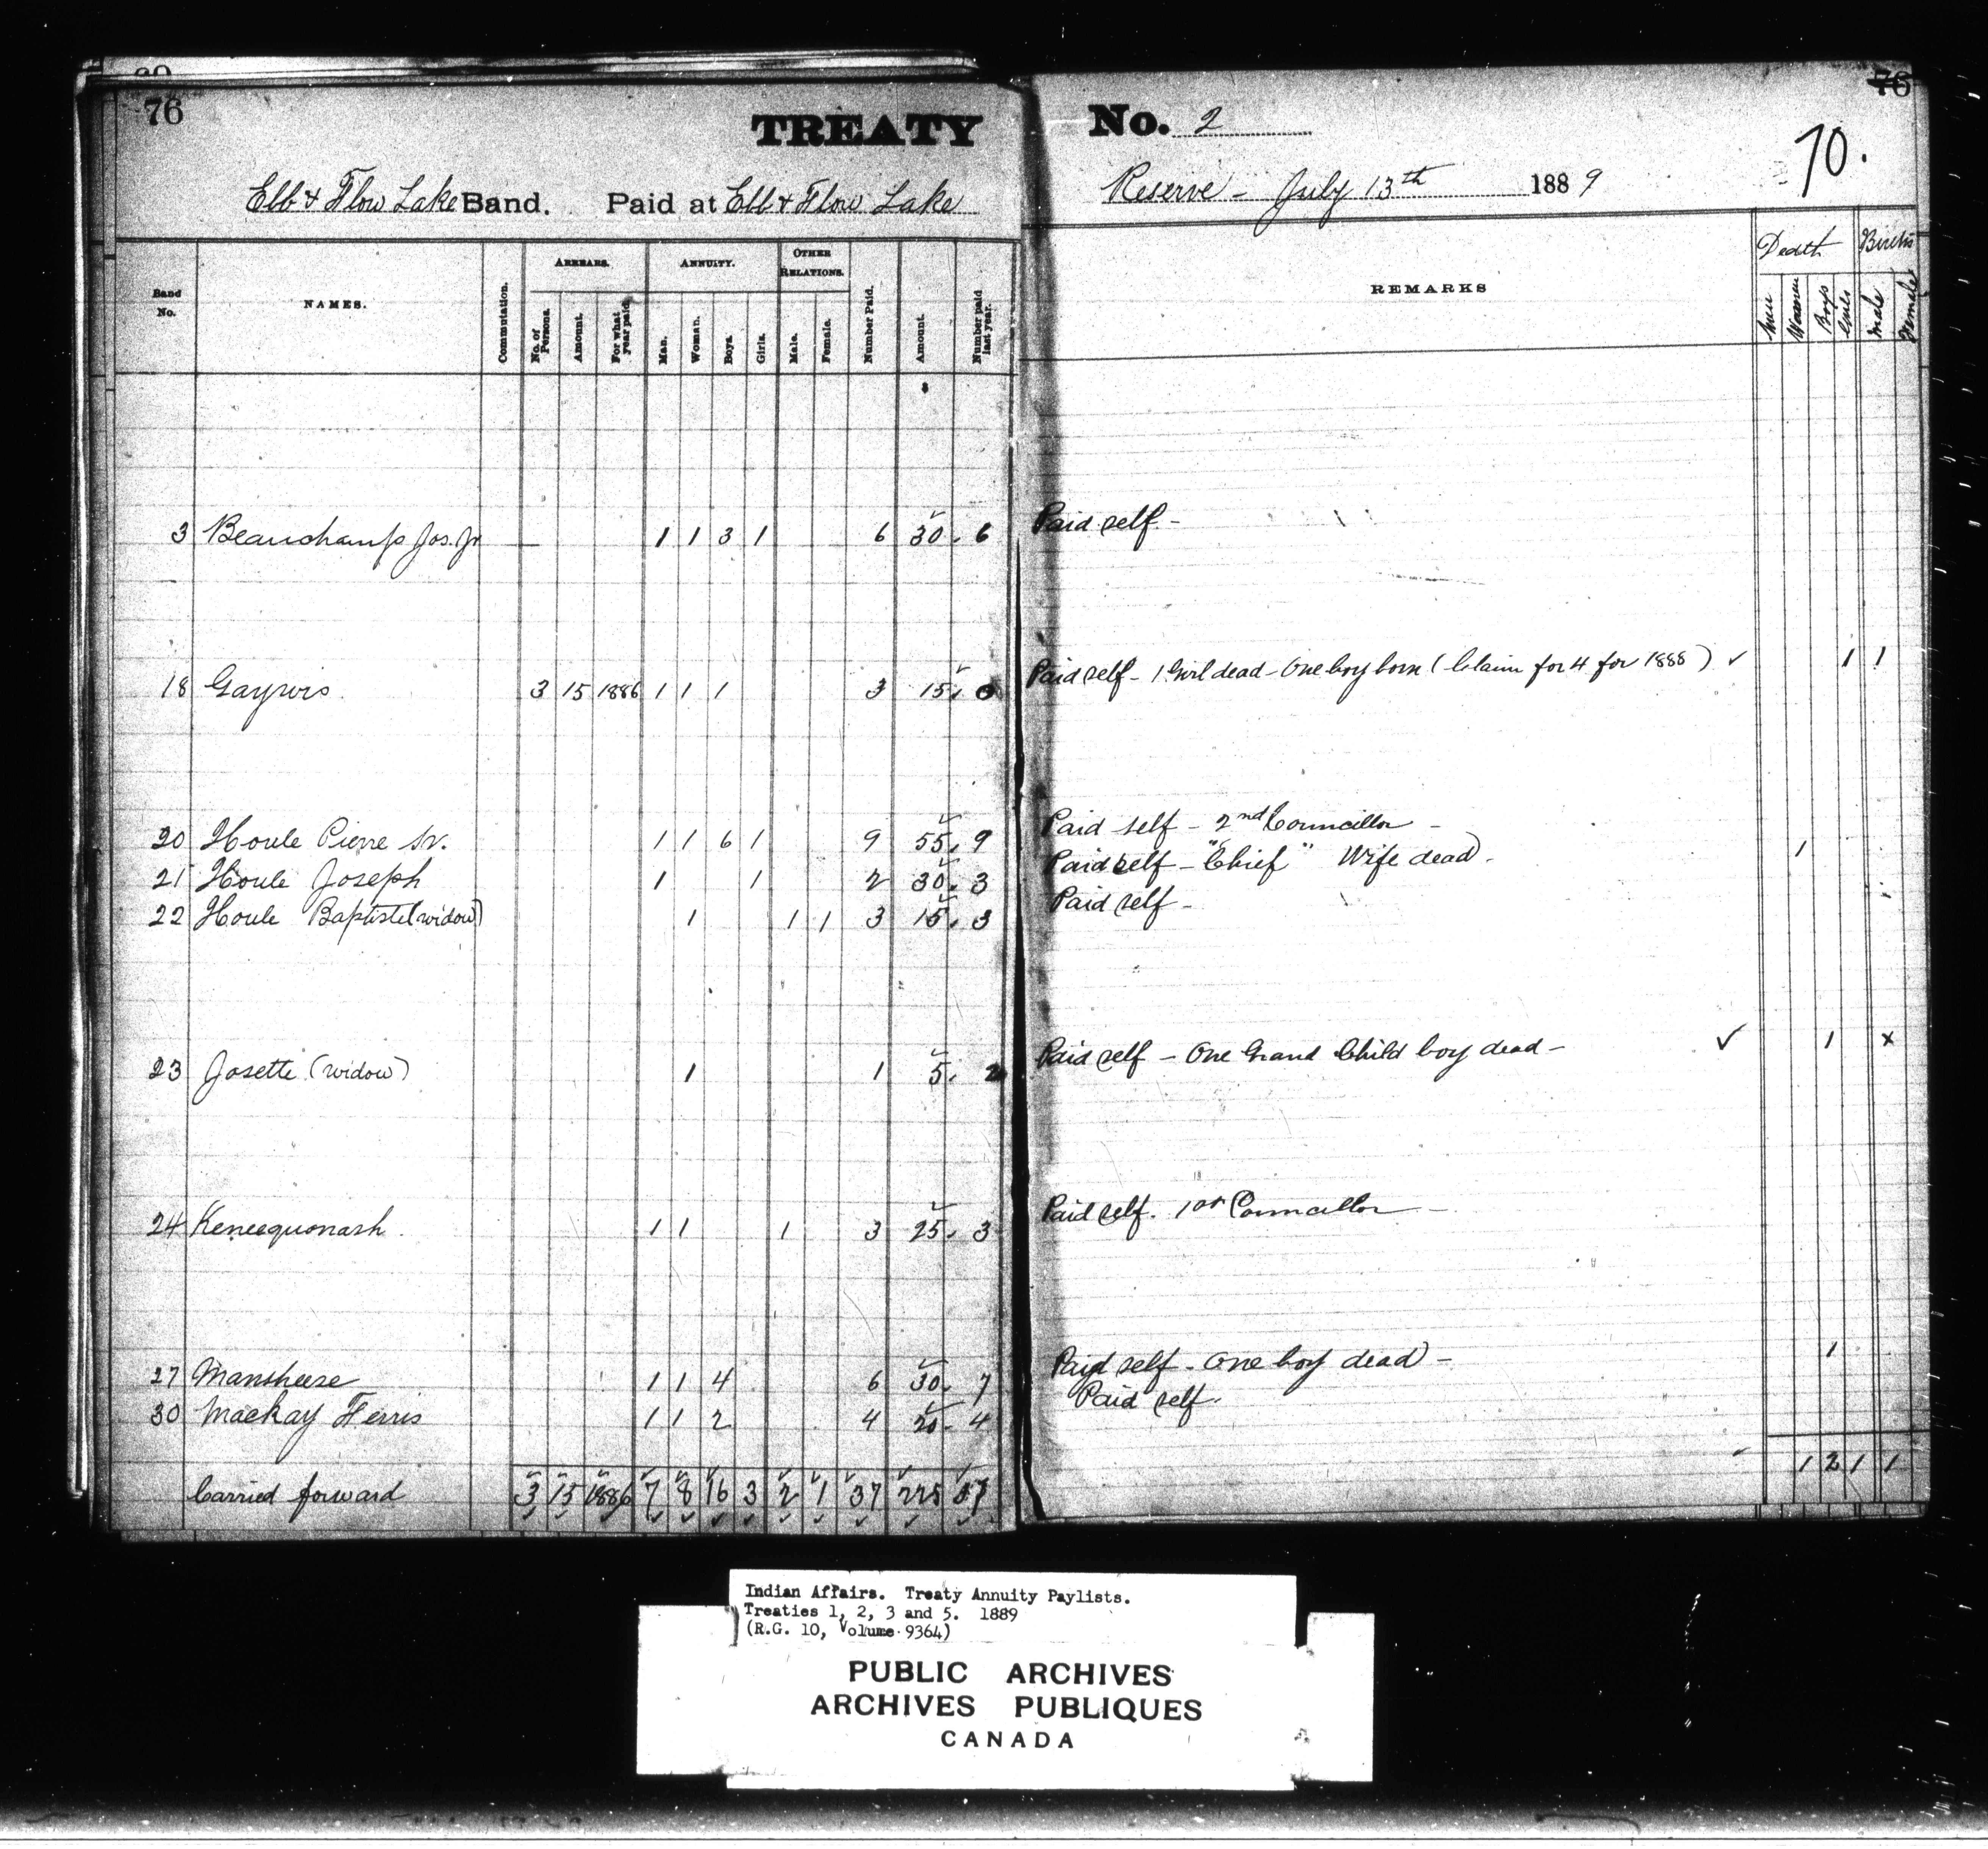 76
76
TREATY No. 2
70.
Ebb & Flow Lake Band. Paid at Ebb & Flow Lake Reserve - July 13th 1889
Band No. NAMES. Commutation. ARREARS. No. of Persons. Amount. For what year paid. ANNUITY. Man. Woman. Boys. Girls. OTHER RELATIONS. Male. Female. Number Paid. Amount. Number paid last year. REMARKS Death Men Women Boys Girls Births Male Female
$
3 Beauchamp Jos. Jr — 1 1 3 1 6 30. 6 Paid self -
18 Gaywis 3 15 1886 1 1 1 3 15. 0 Paid self - 1 Girl dead - One boy born (Claim for 4 for 1888) ✓ 1 1
20 Houle Pierre Sr. 1 1 6 1 9 55. 9 Paid self - 2nd Councillor -
21 Houle Joseph 1 1 2 30. 3 Paid self - "Chief" Wife dead - 1
22 Houle Baptiste (widow) 1 1 1 3 15. 3 Paid self -
23 Josette (widow) 1 1 5. 2 Paid self - One Grand Child boy dead - ✓ 1 x
24 Keneequonash. 1 1 1 3 25. 3 Paid self. 1st Councillor -
27 Mansheese 1 1 4 6 30. 7 Paid self - One boy dead - 1
30 Mackay Ferris 1 1 2 4 20. 4 Paid self.
Carried forward 3 15 1886 7 8 16 3 2 1 37 225 37 1 2 1 1
Indian Affairs. Treaty Annuity Paylists.
Treaties 1, 2, 3 and 5. 1889
(R.G. 10, Volume 9364)
PUBLIC ARCHIVES
ARCHIVES PUBLIQUES
CANADA